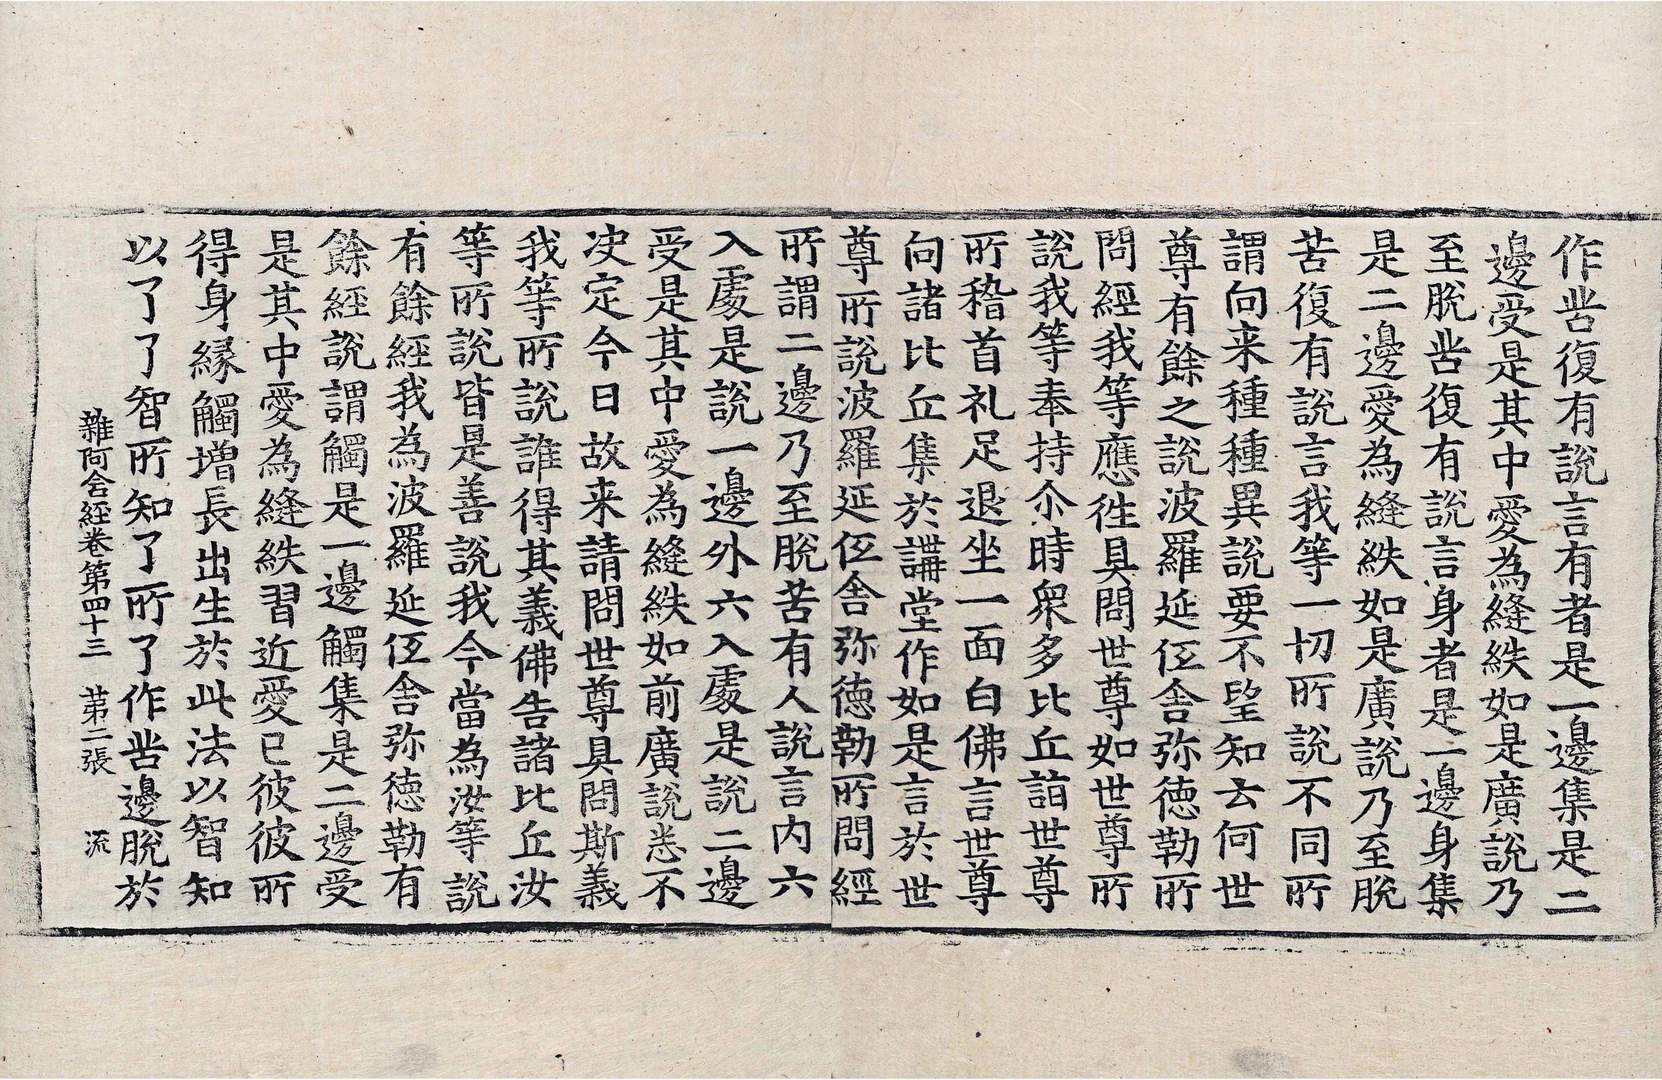 作苦復有說言有者是一邊集是二
邊受是其中愛為縫紩如是廣說乃
至脫苦復有說言身者是一邊身集
是二邊愛為縫紩如是廣說乃至脫
苦復有說言我等一切所說不同所
謂向来種種異說要不望知云何世
尊有餘之說波羅延伍舍弥德勒所
問經我等應徃具問世尊如世尊所
說我等奉持尒時衆多比丘詣世尊
所稽首礼足退坐一面白佛言世尊
向諸比丘集於講堂作如是言於世
尊所說波羅延伍舍弥德勒所問經
所謂二邊乃至脫苦有人說言内六
入處是說一邊外六入處是說二邊
受是其中愛為縫紩如前廣說悉不
决定今日故来請問世尊具問斯義
我等所說誰得其義佛告諸比丘汝
等所說皆是善說我今當為汝等說
有餘經我為波羅延伍舍弥德勒有
餘經說謂觸是一邊觸集是二邊受
是其中愛為縫紩習近愛已彼彼所
得身縁觸增長出生於此法以智知
以了了智所知了所了作苦邊脫於
雜阿含經卷第四十三 苐二張 流